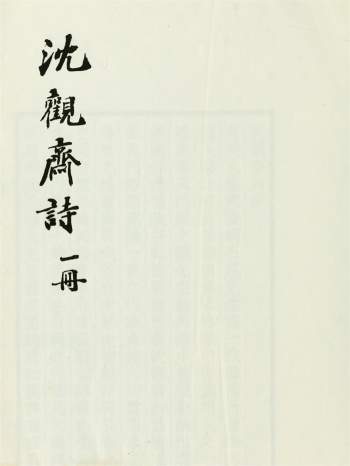 沈觀齋詩一冊